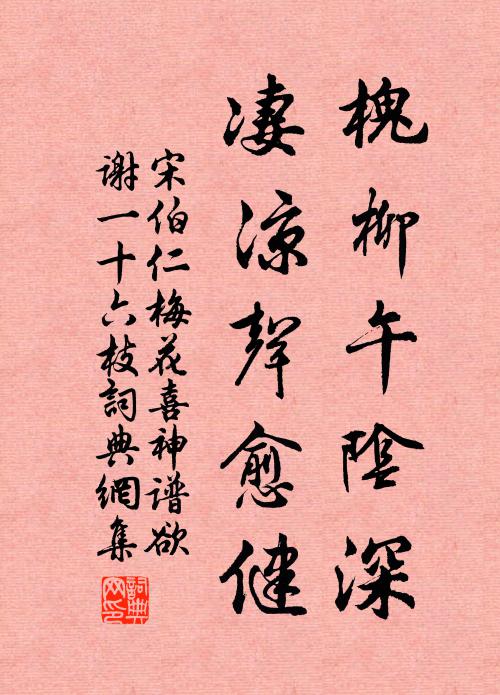 槐柳午陰深
凄涼聲愈健
宋伯仁梅花喜神谱欲
谢一十六枝詞典網集
詞典
网印